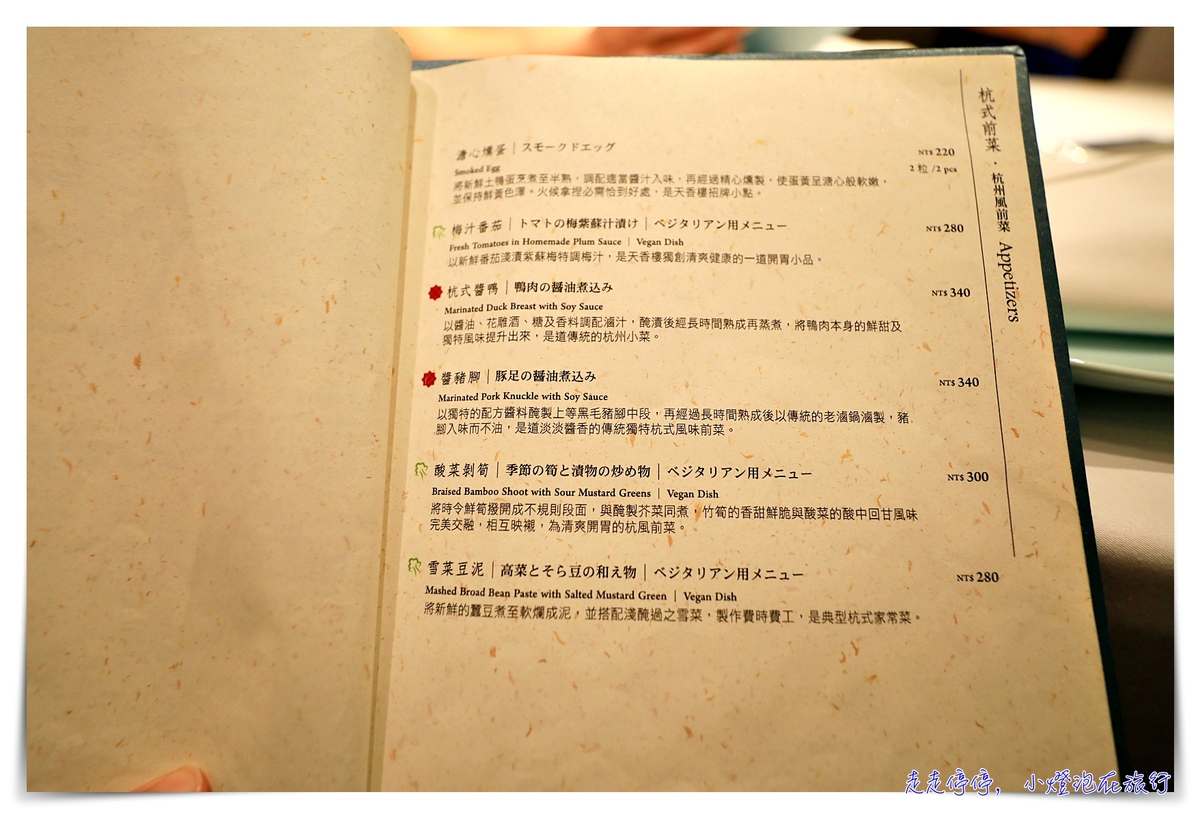 溏心燻蛋｜スモークドエッグ
NT$ 220
Smoked Egg
2 粒 /2 pcs
將新鮮土鴨蛋烹煮至半熟，調配適當醬汁入味，再經過精心燻製，使蛋黃呈溏心般軟嫩，
並保持鮮黃色澤。火候拿捏必需恰到好處，是天香樓招牌小點。
梅汁番茄｜トマトの梅紫蘇汁漬け｜ベジタリアン用メニュー
NT$ 280
Fresh Tomatoes in Homemade Plum Sauce ｜ Vegan Dish
以新鮮番茄淺漬紫蘇梅特調梅汁，是天香樓獨創清爽健康的一道開胃小品。
杭式醬鴨｜鴨肉の醤油煮込み
NT$ 340
Marinated Duck Breast with Soy Sauce
以醬油、花雕酒、糖及香料調配滷汁，醃漬後經長時間熟成再蒸煮，將鴨肉本身的鮮甜及
獨特風味提升出來，是道傳統的杭州小菜。
醬豬腳｜豚足の醤油煮込み
NT$ 340
Marinated Pork Knuckle with Soy Sauce
以獨特的配方醬料醃製上等黑毛豬腳中段，再經過長時間熟成後以傳統的老滷鍋滷製，豬
腳入味而不油，是道淡淡醬香的傳統獨特杭式風味前菜。
酸菜剝筍｜季節の筍と漬物の炒め物｜ベジタリアン用メニュー
NT$ 300
Braised Bamboo Shoot with Sour Mustard Greens ｜ Vegan Dish
將時令鮮筍撥開成不規則段面，與醃製芥菜同煮，竹筍的香甜鮮脆與酸菜的酸中回甘風味
完美交融，相互映襯，為清爽開胃的杭風前菜。
雪菜豆泥｜高菜とそら豆の和え物｜ベジタリアン用メニュー
NT$ 280
Mashed Broad Bean Paste with Salted Mustard Green ｜ Vegan Dish
將新鮮的蠶豆煮至軟爛成泥，並搭配淺醃過之雪菜，製作費時費工，是典型杭式家常菜。
杭式前菜・杭州風前菜 Appetizers
走走停停，小燈泡在旅行